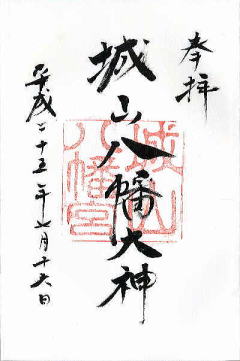 奉拝
城山八幡大神
城山八幡宮
平成二十五年七月十六日